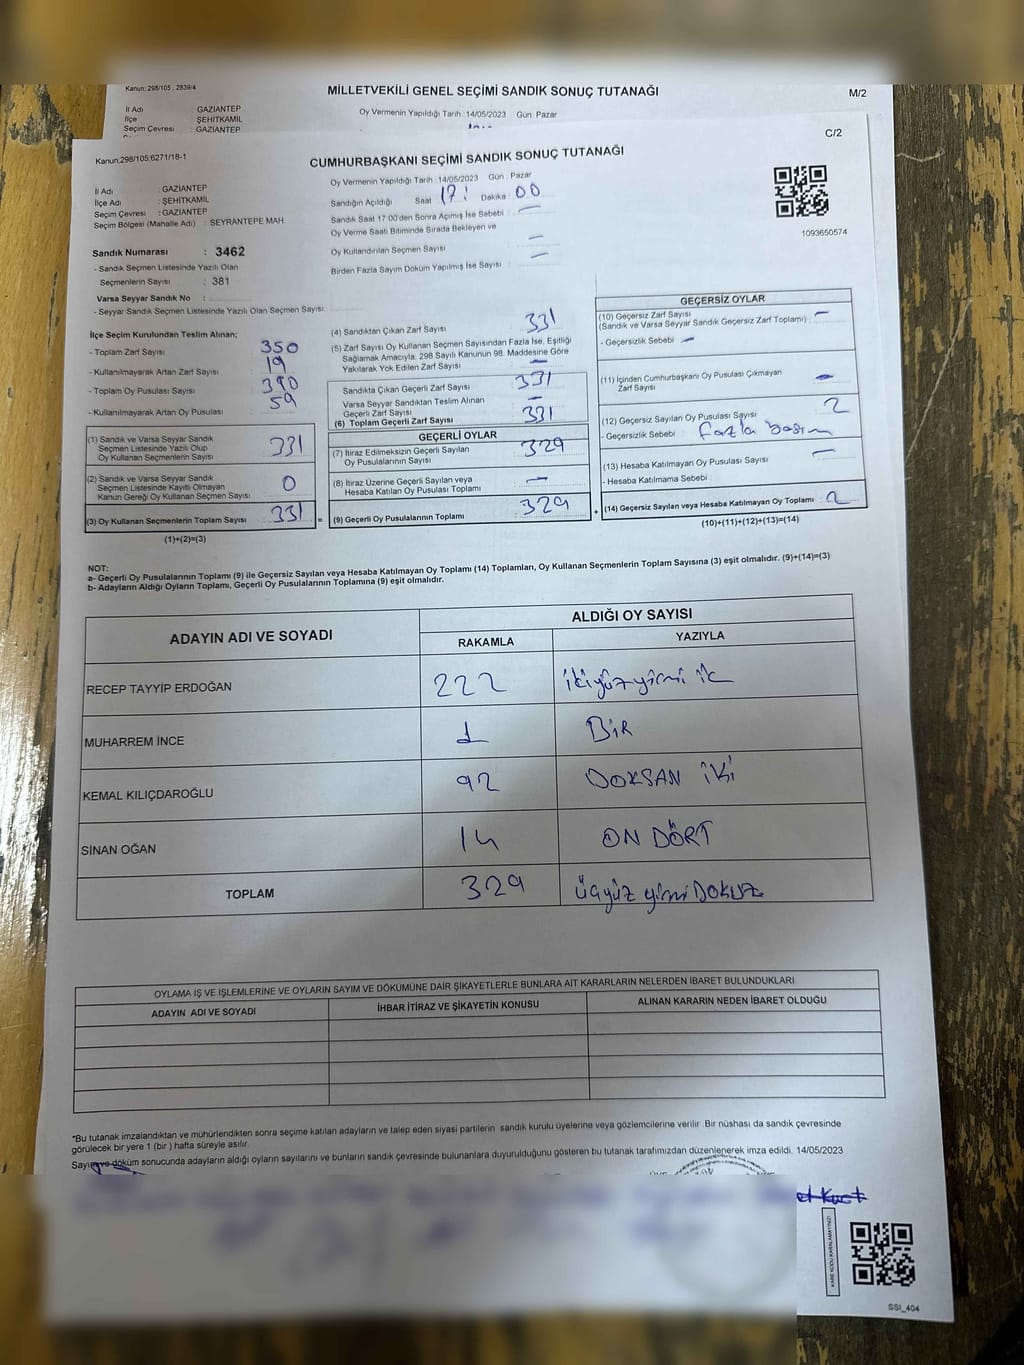 Kanun: 298/105 , 2839/4
MİLLETVEKİLİ GENEL SEÇİMİ SANDIK SONUÇ TUTANAĞI
M/2
İl Adı : GAZİANTEP
Oy Vermenin Yapıldığı Tarih :14/05/2023 Gün: Pazar
İlçe : ŞEHİTKAMİL
Seçim Çevresi : GAZİANTEP
C/2
Kanun;298/105;6271/18-1
CUMHURBAŞKANI SEÇİMİ SANDIK SONUÇ TUTANAĞI
İl Adı : GAZİANTEP
İlçe Adı : ŞEHİTKAMİL
Seçim Çevresi : GAZİANTEP
Seçim Bölgesi (Mahalle Adı) : SEYRANTEPE MAH
Oy Vermenin Yapıldığı Tarih : 14/05/2023 Gün : Pazar
Sandığın Açıldığı Saat 17: Dakika : 00
Sandık Saat 17:00'den Sonra Açımış İse Sebebi : -
Oy Verme Saati Bitiminde Sırada Bekleyen ve
Oy Kullandırılan Seçmen Sayısı : -
Birden Fazla Sayım Döküm Yapılmış İse Sayısı : -
1093650574
Sandık Numarası : 3462
- Sandık Seçmen Listesinde Yazılı Olan
Seçmenlerin Sayısı : 381
Varsa Seyyar Sandık No :
- Seyyar Sandık Seçmen Listesinde Yazılı Olan Seçmen Sayısı:
İlçe Seçim Kurulundan Teslim Alınan;
- Toplam Zarf Sayısı : 350
- Kullanılmayarak Artan Zarf Sayısı : 19
- Toplam Oy Pusulası Sayısı : 390
- Kullanılmayarak Artan Oy Pusulası : 59
(1) Sandık ve Varsa Seyyar Sandık
Seçmen Listesinde Yazılı Olup
Oy Kullanan Seçmenlerin Sayısı : 331
(2) Sandık ve Varsa Seyyar Sandık
Seçmen Listesinde Kayıtlı Olmayan
Kanun Gereği Oy Kullanan Seçmen Sayısı : 0
(3) Oy Kullanan Seçmenlerin Toplam Sayısı : 331 =
(1)+(2)=(3)
(4) Sandıktan Çıkan Zarf Sayısı : 331
(5) Zarf Sayısı Oy Kullanan Seçmen Sayısından Fazla İse, Eşitliği
Sağlamak Amacıyla, 298 Sayılı Kanunun 98. Maddesine Göre
Yakılarak Yok Edilen Zarf Sayısı : -
Sandıkta Çıkan Geçerli Zarf Sayısı : 331
Varsa Seyyar Sandıktan Teslim Alınan
Geçerli Zarf Sayısı : -
(6) Toplam Geçerli Zarf Sayısı : 331
GEÇERLİ OYLAR
(7) İtiraz Edilmeksizin Geçerli Sayılan
Oy Pusulalarının Sayısı : 329
(8) İtiraz Üzerine Geçerli Sayılan veya
Hesaba Katılan Oy Pusulası Toplamı : -
(9) Geçerli Oy Pusulalarının Toplamı : 329 +
GEÇERSİZ OYLAR
(10) Geçersiz Zarf Sayısı : -
(Sandık ve Varsa Seyyar Sandık Geçersiz Zarf Toplamı)
- Geçersizlik Sebebi : -
(11) İçinden Cumhurbaşkanı Oy Pusulası Çıkmayan
Zarf Sayısı : -
(12) Geçersiz Sayılan Oy Pusulası Sayısı : 2
- Geçersizlik Sebebi : fazla basım
(13) Hesaba Katılmayan Oy Pusulası Sayısı : -
- Hesaba Katılmama Sebebi :
(14) Geçersiz Sayılan veya Hesaba Katılmayan Oy Toplamı : 2
(10)+(11)+(12)+(13)=(14)
NOT:
a- Geçerli Oy Pusulalarının Toplamı (9) ile Geçersiz Sayılan veya Hesaba Katılmayan Oy Toplamı (14) Toplamları, Oy Kullanan Seçmenlerin Toplam Sayısına (3) eşit olmalıdır. (9)+(14)=(3)
b- Adayların Aldığı Oyların Toplamı, Geçerli Oy Pusulalarının Toplamına (9) eşit olmalıdır.
ADAYIN ADI VE SOYADI
ALDIĞI OY SAYISI
RAKAMLA YAZIYLA
RECEP TAYYİP ERDOĞAN 222 ikiyüzyirmi ik
MUHARREM İNCE 1 BİR
KEMAL KILIÇDAROĞLU 92 DOKSAN İKİ
SİNAN OĞAN 14 ON DÖRT
TOPLAM 329 üçyüz yirmi DOKUZ
OYLAMA İŞ VE İŞLEMLERİNE VE OYLARIN SAYIM VE DÖKÜMÜNE DAİR ŞİKAYETLERLE BUNLARA AİT KARARLARIN NELERDEN İBARET BULUNDUKLARI
ADAYIN ADI VE SOYADI İHBAR İTİRAZ VE ŞİKAYETİN KONUSU ALINAN KARARIN NEDEN İBARET OLDUĞU
*Bu tutanak imzalandıktan ve mühürlendikten sonra seçime katılan adayların ve talep eden siyasi partilerin sandık kurulu üyelerine veya gözlemcilerine verilir .Bir nüshası da sandık çevresinde
görülecek bir yere 1 (bir ) hafta süreyle asılır.
Sayım ve döküm sonucunda adayların aldığı oyların sayılarını ve bunların sandık çevresinde bulunanlara duyurulduğunu gösteren bu tutanak tarafımızdan düzenlenerek imza edildi. 14/05/2023
KARE KODU KARALAMAYINIZ!
SSI_404